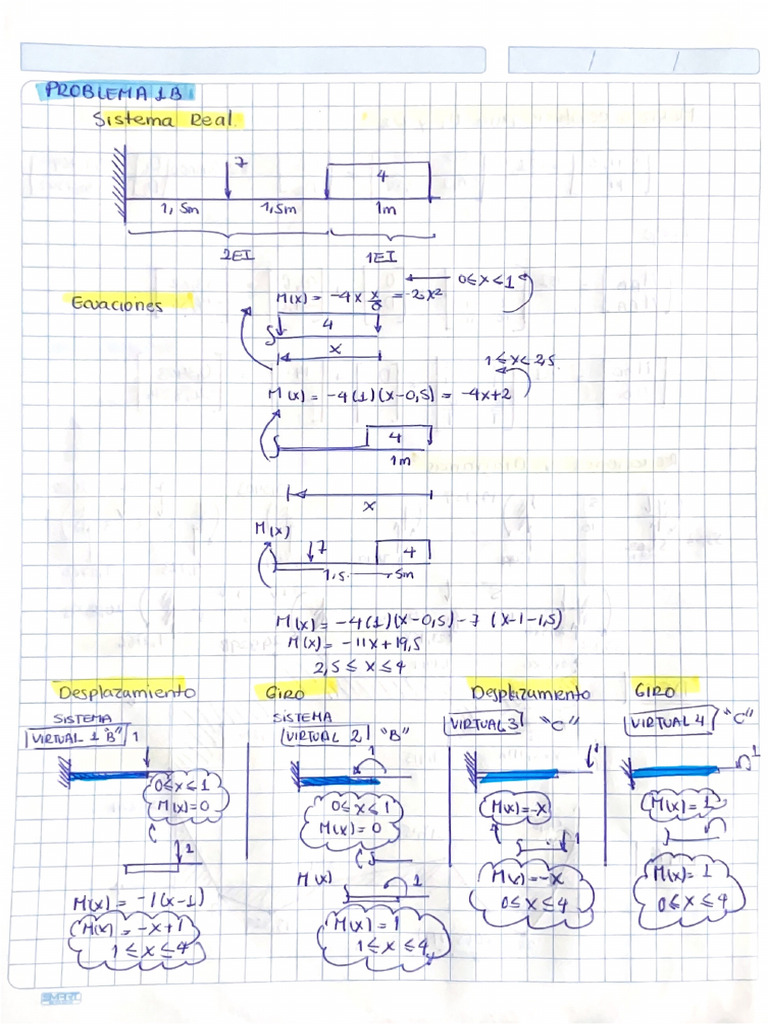 PROBLEMA 1B
Sistema Real
7
4
1,5m 1,5m 1m
2EI 1EI
0≤x<1
Ecuaciones
M(x) = -4x x/2 = -2x²
4
x
1≤x<2,5
M(x) = -4(1)(x-0,5) = -4x+2
4
1m
x
M(x)
7
4
M(x) = -4(1)(x-0,5)-7(x-1-1,5)
M(x) = -11x+19,5
2,5≤x≤4
Desplazamiento
SISTEMA
VIRTUAL 1 "B"
1
0≤x≤1
M(x)=0
1
M(x) = -1(x-1)
M(x) = -x+1
1≤x≤4
GIRO
SISTEMA
VIRTUAL 2 "B"
1
0≤x≤1
M(x)=0
M(x)
1
M(x)=1
1≤x≤4
Desplazamiento
VIRTUAL 3 "C"
1
M(x)=-x
1
M(x)=-x
0≤x≤4
GIRO
VIRTUAL 4 "C"
1
M(x)=1
M(x)=1
0≤x≤4